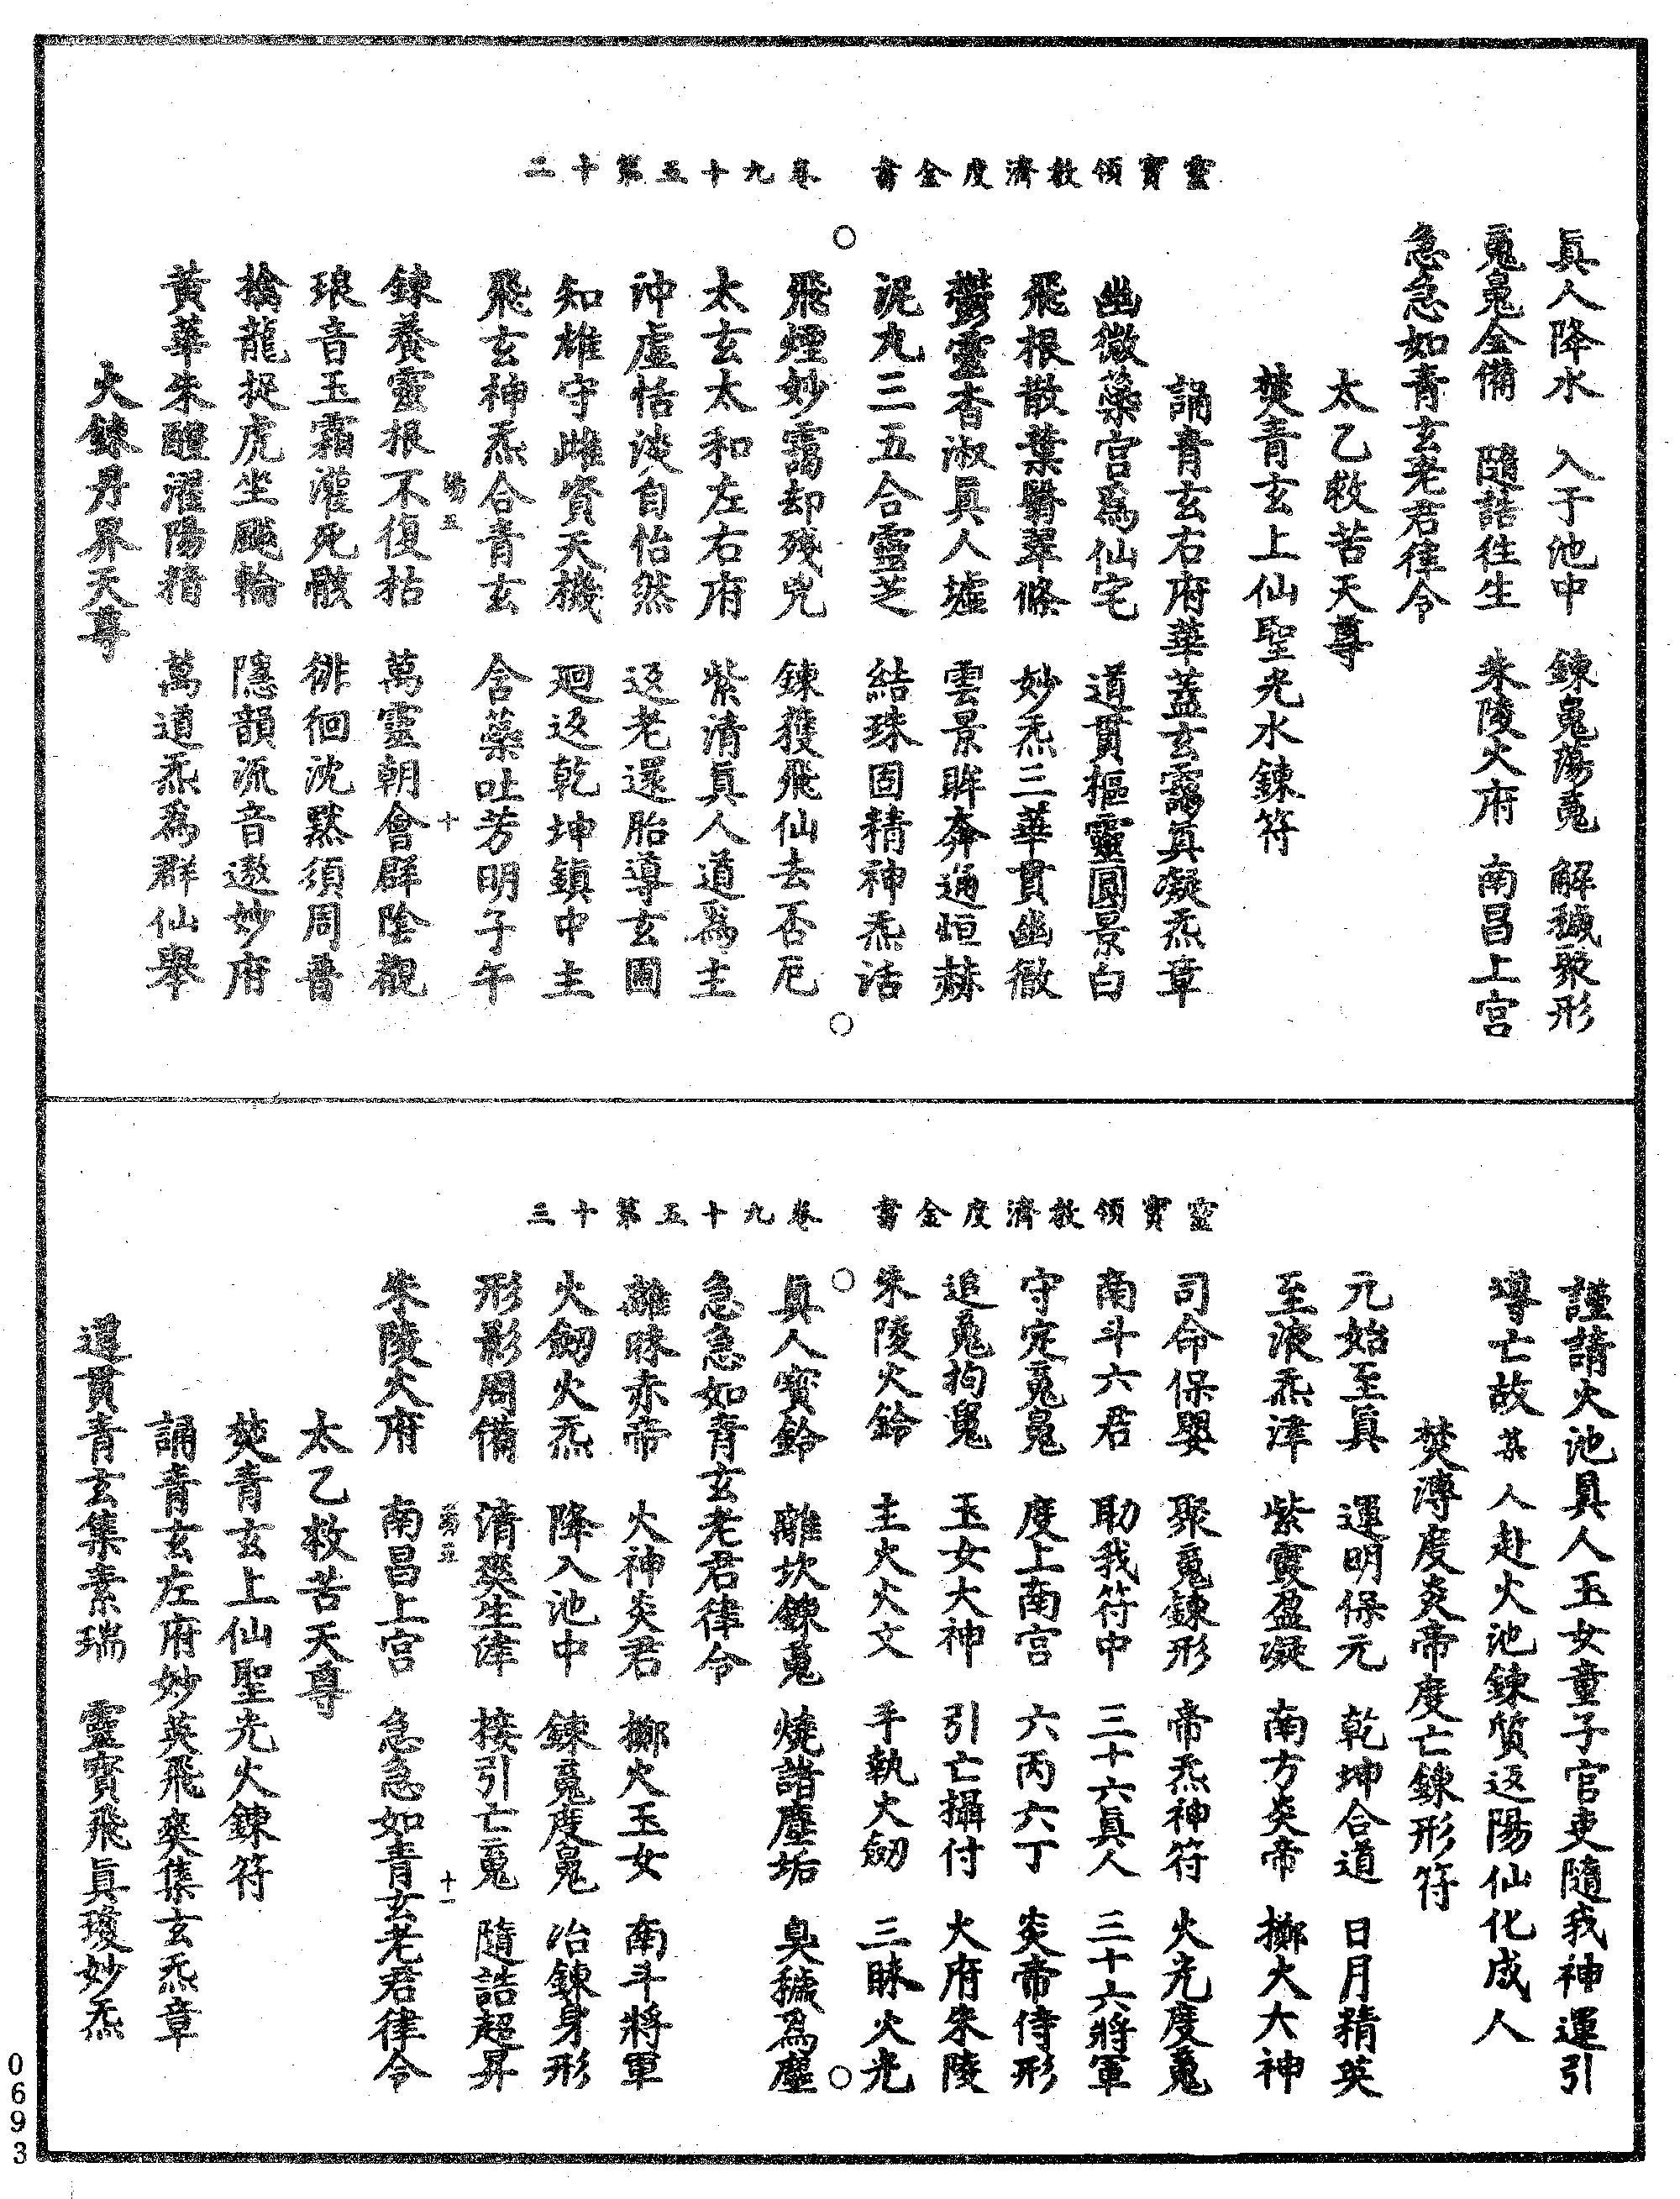 靈寶領教濟度金書　卷九十五第十二
真人降水　入于池中　鍊䰟蕩䰟　解穢聚形
䰟䰟全備　隨誥往生　朱陵火府　南昌上宮
急急如青玄老君律令
太乙救苦天尊
焚青玄上仙聖光水鍊符
誦青玄右府華蓋玄靄真凝炁章
幽微蘂宮為仙宅　道貫樞靈圓景白
飛根散葉翳翠條　妙炁三華貫幽徹
鬱靈杳淑真人墟　雲景眸奔通恒赫
泥丸三五合靈芝　結珠固精神炁活
飛煙妙靄却殘兇　鍊獲飛仙去否厄
太玄太和左右府　紫清真人道為主
沖虛恬淡自怡然　返老還胎導玄圃
知雄守雌資天機　廻返乾坤鎮中主
飛玄神炁合青玄　含蘂吐芳明子午
十
鍊養靈根不復枯　萬靈朝會群陰觀
琅音玉霜灌死骸　徘徊沈默須周普
擒龍捉虎坐飈輪　隱韻流音遨妙府
黃華朱醴濯陽精　萬道炁為群仙舉
火鍊丹界天尊
靈寶領教濟度金書　卷九十五第十三
謹請火池真人玉女童子官吏隨我神運引
導亡故某人赴火池鍊質返陽仙化成人
焚薄度炎帝度亡鍊形符
元始至真　運明保元　乾坤合道　日月精英
至液炁津　紫靈盈凝　南方炎帝　擲火大神
司命保嬰　聚䰟鍊形　帝炁神符　火光度䰟
南斗六君　助我符中　三十六真人　三十六將軍
守定䰟䰟　度上南宮　六丙六丁　炎帝侍形
追䰟拘䰟　玉女大神　引亡攝付　火府朱陵
朱陵火鈴　主火火文　手執火劒　三昧火光
真人寶鈴　離坎鍊䰟　燒諸塵垢　臭穢為塵
急急如青玄老君律令
離昧赤帝　火神炎君　擲火玉女　南斗將軍
火劒火炁　降入池中　鍊䰟度䰟　冶鍊身形
形影周備　清爽生津　接引亡䰟　隨誥超昇
十一
朱陵火府　南昌上宮　急急如青玄老君律令
太乙救苦天尊
焚青玄上仙聖光火鍊符
誦青玄左府妙英飛爽集玄炁章
道貫青玄集素瑞　靈寶飛真瓊妙炁
0693